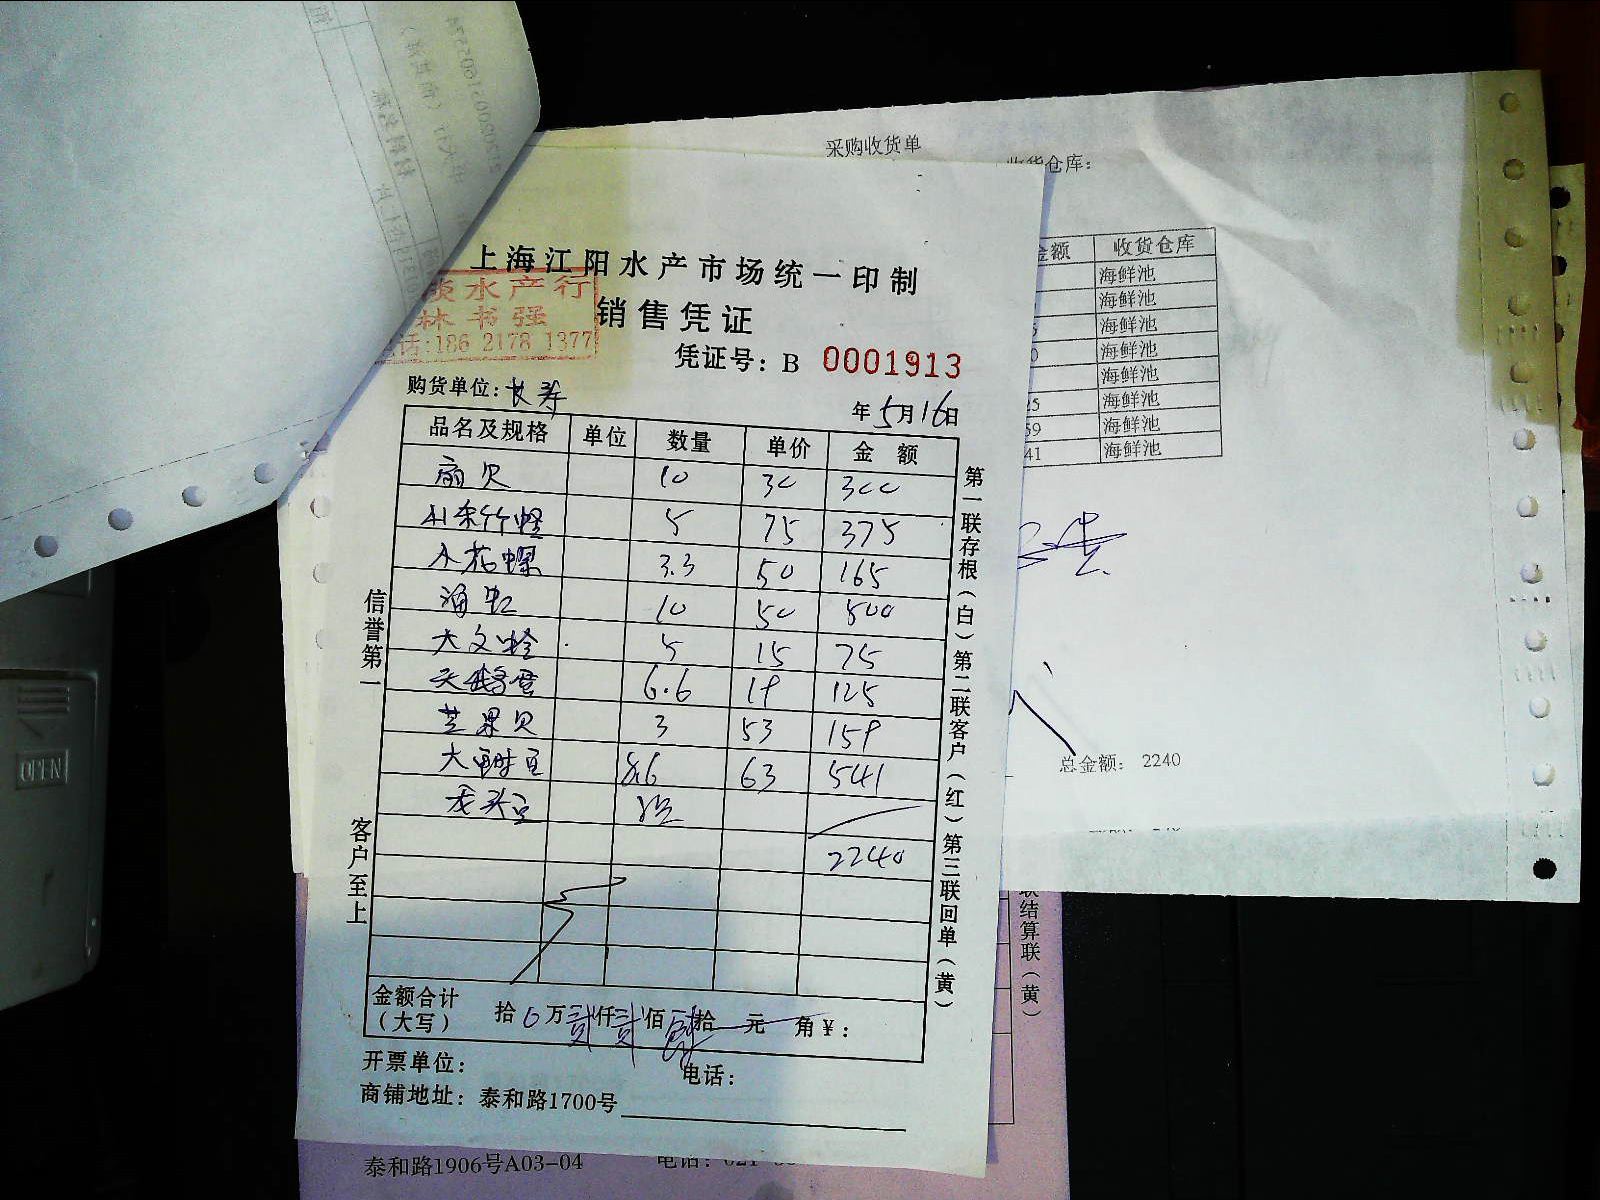 采购收货单
收货仓库：
上海江阳水产市场统一印制
水产行
林书强
销售凭证
话:186 2178 1377
凭证号：B 0001913
购货单位：长寿
年5月16日
品名及规格 单位 数量 单价 金额
扇贝 10 30 300
5 75 375
小花螺 3.3 50 165
海虹 10 50 500
大文蛤 5 15 75
天鹅蛋 6.6 19 125
芒果贝 3 53 159
大 8.6 63 541
2240
金额合计（大写） 拾0万贰仟贰佰肆拾 元 角¥：
开票单位： 电话：
商铺地址：泰和路1700号
信誉第一
客户至上
第一联存根（白）第二联客户（红）第三联回单（黄）
金额 收货仓库
海鲜池
海鲜池
海鲜池
海鲜池
海鲜池
25 海鲜池
59 海鲜池
41 海鲜池
总金额： 2240
联结算联（黄）
泰和路1906号A03-04 电话：021
OPEN